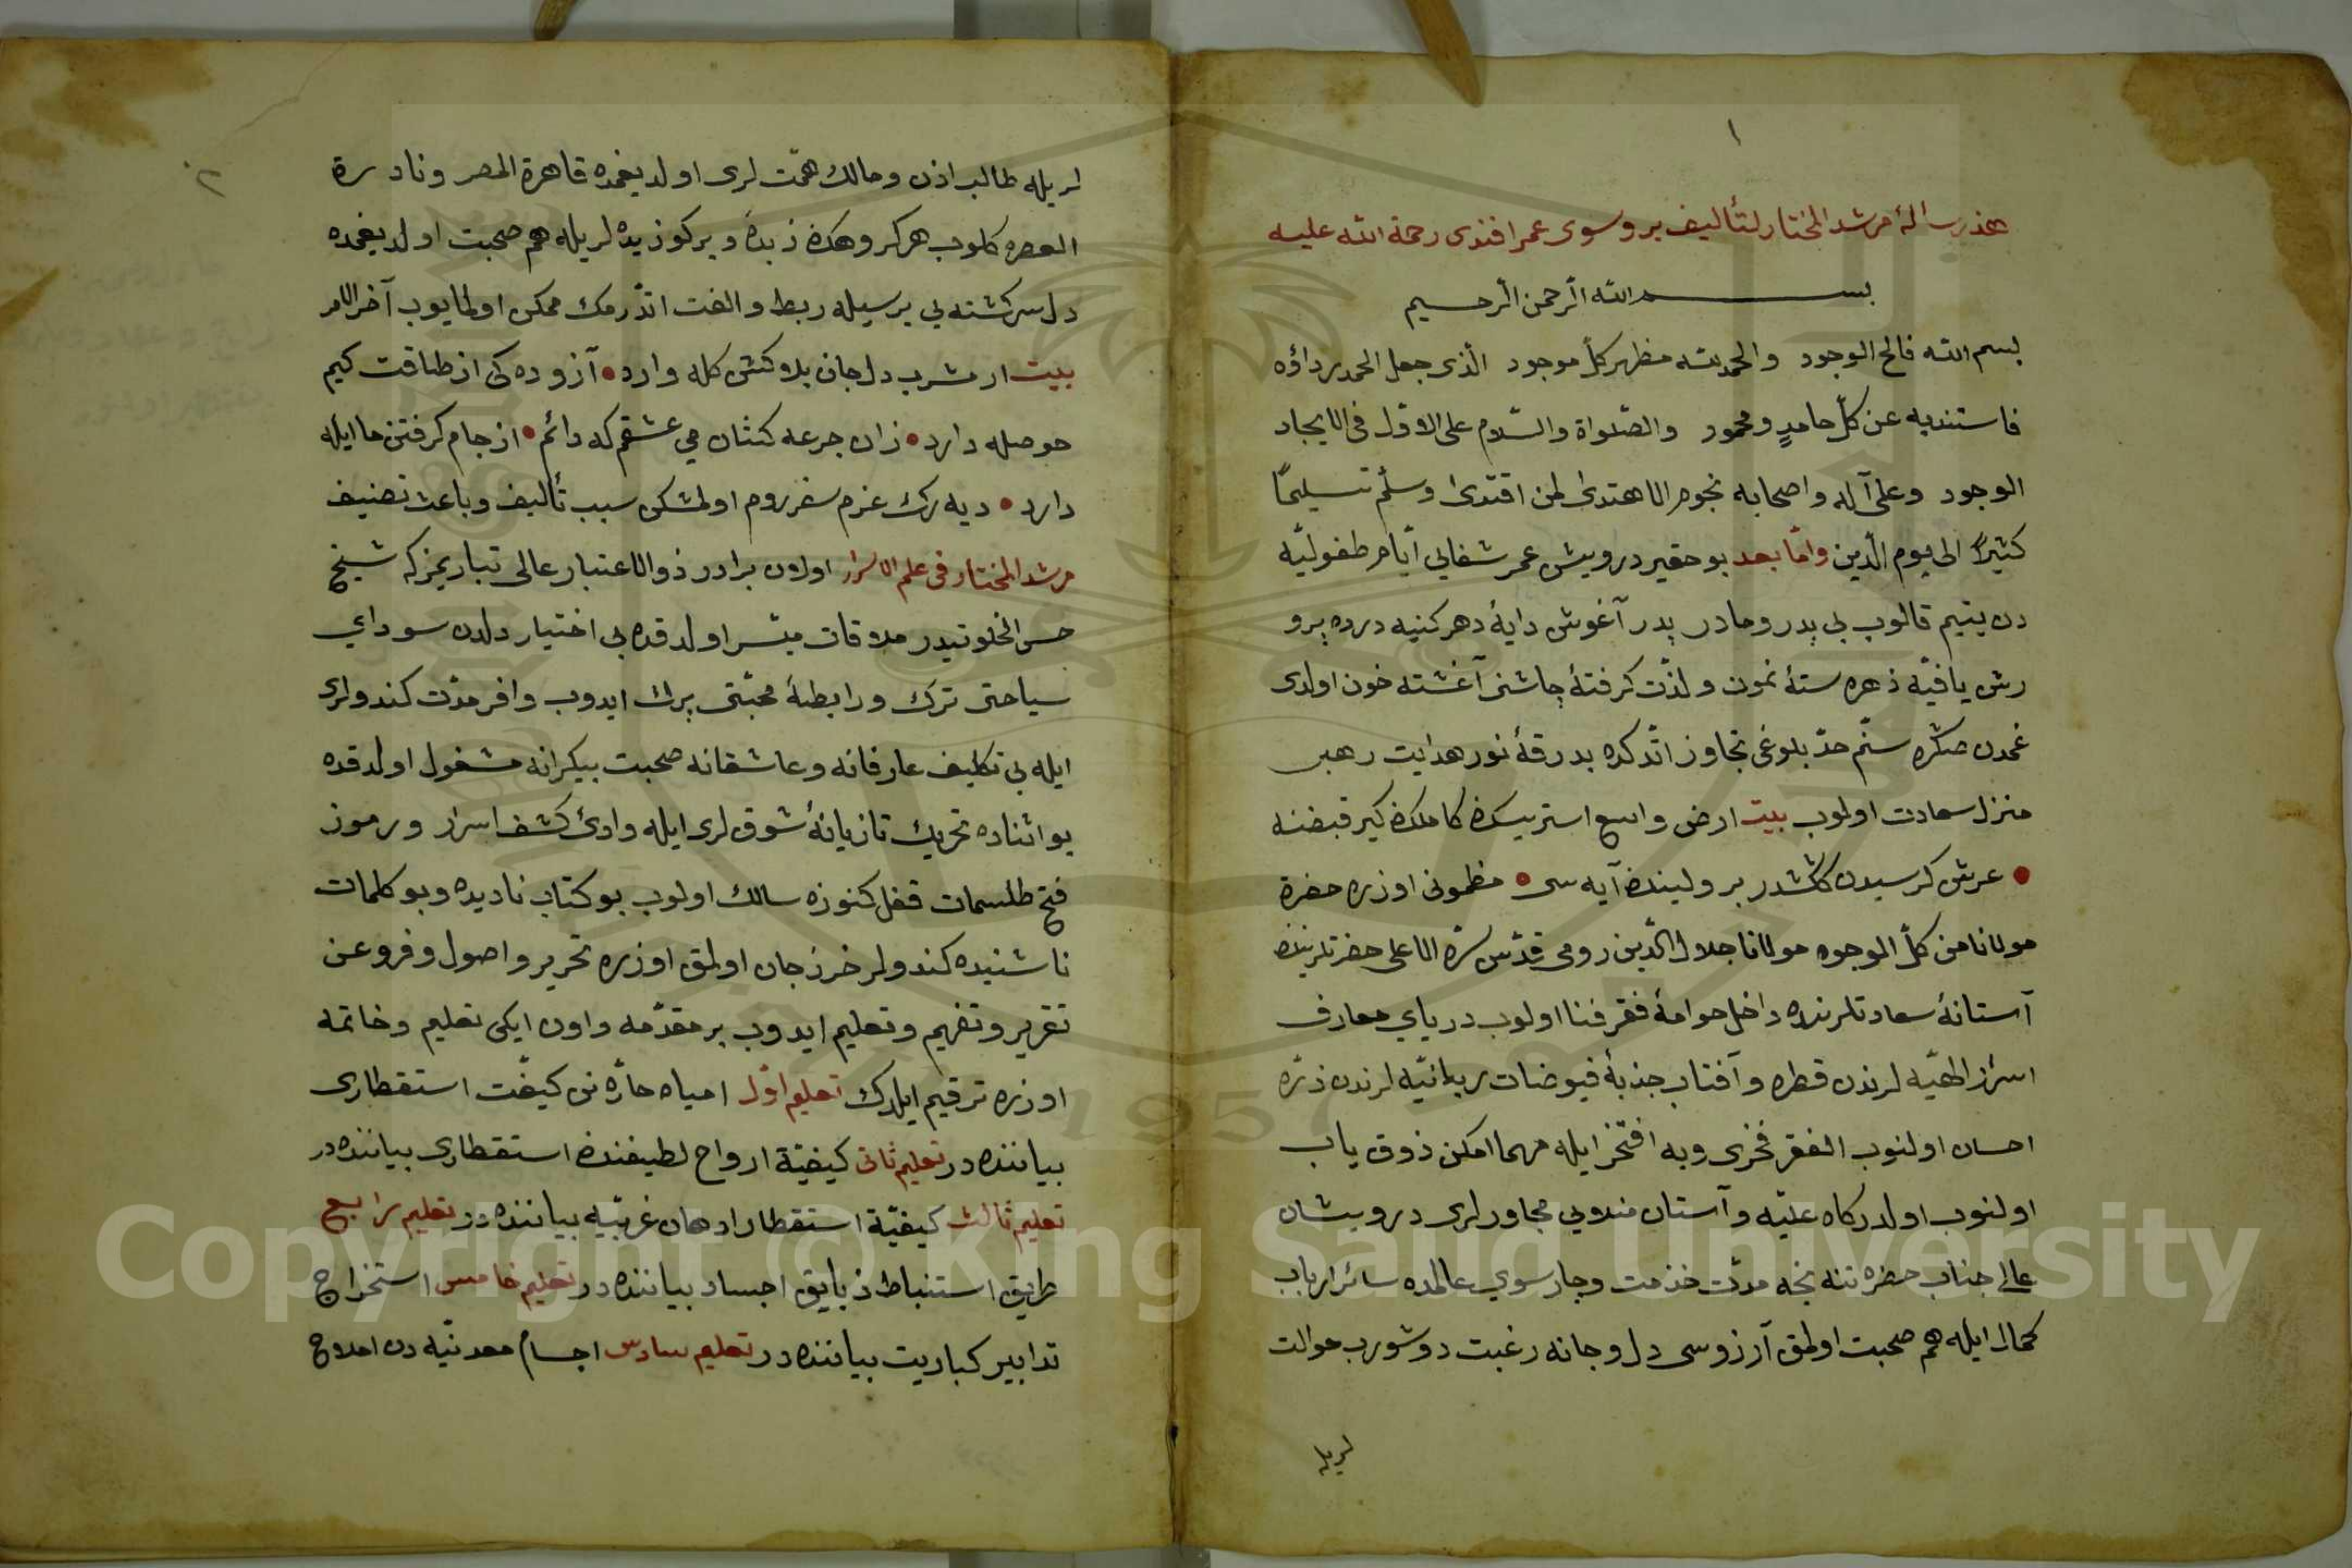 ١
هذه رسالۀ مرشد المختار لتأليف بروسوى عمر افندى رحمة الله عليه
بسم الله الرّحمن الرّحيم
بسم الله فالح الوجود والحمد لله مظهر كلّ موجود الّذى جعل الحمد رداؤه
فاستند به عن كلّ حامدٍ ومحمود والصّلواة والسّلام على الاوّل فى الايجاد
الوجود وعلى آله واصحابه نجوم الاهتدى لمن اقتدى وسلّم تسليمًا
كثيرًا الى يوم الدّين وامّا بعد بو حقير درويش عمر شفائى ايّام طفوليّه
دن يتيم قالوب بى پدر ومادر بدر آغوش دايۀ دهر كنيه درده پرو
رش يافيّه ذهره ستۀ نمون ولذّت كرفتۀ چاشنى آغشته خون اولدى
غمدن صكره سنّم حدّ بلوغى تجاوز اتّدكده بدرقۀ نور هدايت رهبر
منزل سعادت اولوب بيت ارض واسع استريسك كاملك كير قبضنه
• عرش كرسيدن كاشدر بر ولينك آيه سى • مظمونى اوزره حضرة
مولانا من كلّ الوجوه مولانا جلال الدّين رومى قدّس سرّه الاعلى حضرتلرينك
آستانۀ سعادتلرنده داخل حوامۀ فقر فنا اولوب درياي معارف
اسرار الهيّه لرندن قطره وآفتاب جذبۀ فيوضات ربانيّه لرندن ذرّه
احسان اولنوب الفقر فخرى وبه افتخر ايله مهما امكن ذوق ياب
اولنوب اولدركاه عليّه وآستان مندوبى مجاورلرى درويشان
عالى جناب حضره تنه نخه مدّت خذمت وچارسوي عالمده سائر ارباب
كمال ايله هم صحبت اولمق آرزوسى دل وجانه رغبت دوشورب حوالت
لريله
٢
لريله طالب اذن ومالك همّت لرى اولديغمده قاهرة المصر ونادرة
العصره كلوب هر كروهك زبدۀ وبركوزيده لريله هم صحبت اولديغمده
دل سركشته بى برسيله ربط والفت اتّدرمك ممكن اولمايوب آخر الامر
بيت از مشرب دل جان بلاكش كله وارد • آزوده كى از طاقت كيم
حوصله دارد • زان جرعه كشان مي عشقم كه دائم • از جام كرفتن حا ايله
دارد • ديه رك عزم سفر روم اولمشكن سبب تأليف وباعث تصنيف
مرشد المختار فى علم الاسرار اولان برادر ذو الاعتبار عالى تباريمزكه شيخ
حسن الخلوتيدر ملاقات ميسّر اولدقده بى اختيار دلدن سوداي
سياحتى ترك ورابطۀ محبّتى برك ايدوب وافر مدّت كندولرى
ايله بى تكليف عارفانه وعاشقانه صحبت بيكرانه مشغول اولدقده
بو اثناده تحريك تازيانۀ شوق لرى ايله وادئ كشف اسرار ورموز
فتح طلسمات قفل كنوزه سالك اولوب بو كتاب ناديده وبو كلمات
ناشنيده كندولر خرز جان اولمق اوزره تحرير واصول وفروعن
تقرير وتفهيم وتعليم ايدوب بر مقدّمه واون ايكى تعليم وخاتمه
اوزره ترقيم ايلدك تعليم اوّل امياه حادّه نى كيفّت استقطارى
بياننده در تعليم ثانى كيفيّة ارواح لطيفنك استقطارى بياننده در
تعليم ثالث كيفيّة استقطار ادهان غربيّه بياننده در تعليم رابع
طريق استنباط ذبايق اجساد بياننده در تعليم خامس استخراج
تدابير كباريت بياننده در تعليم سادس اجسام معدنيّه دن املاح